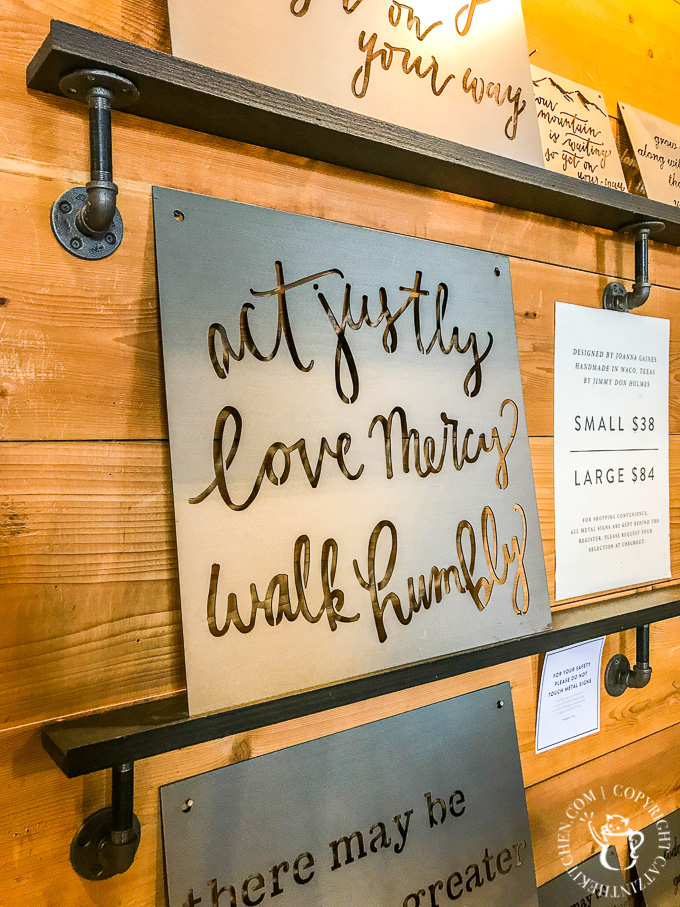 on
your way
your
mountain
is waiting
so get on
your way
grow
along with
act justly
love mercy
walk humbly
DESIGNED BY JOANNA GAINES
HANDMADE IN WACO, TEXAS
BY JIMMY DON HOLMES
SMALL $38
LARGE $84
FOR SHOPPING CONVENIENCE,
ALL METAL SIGNS ARE KEPT BEHIND THE
REGISTER. PLEASE REQUEST YOUR
SELECTION AT CHECKOUT.
FOR YOUR SAFETY
PLEASE DO NOT
TOUCH METAL SIGNS
there may be
greater
COPYRIGHT CATZINTHEKITCHEN.COM |